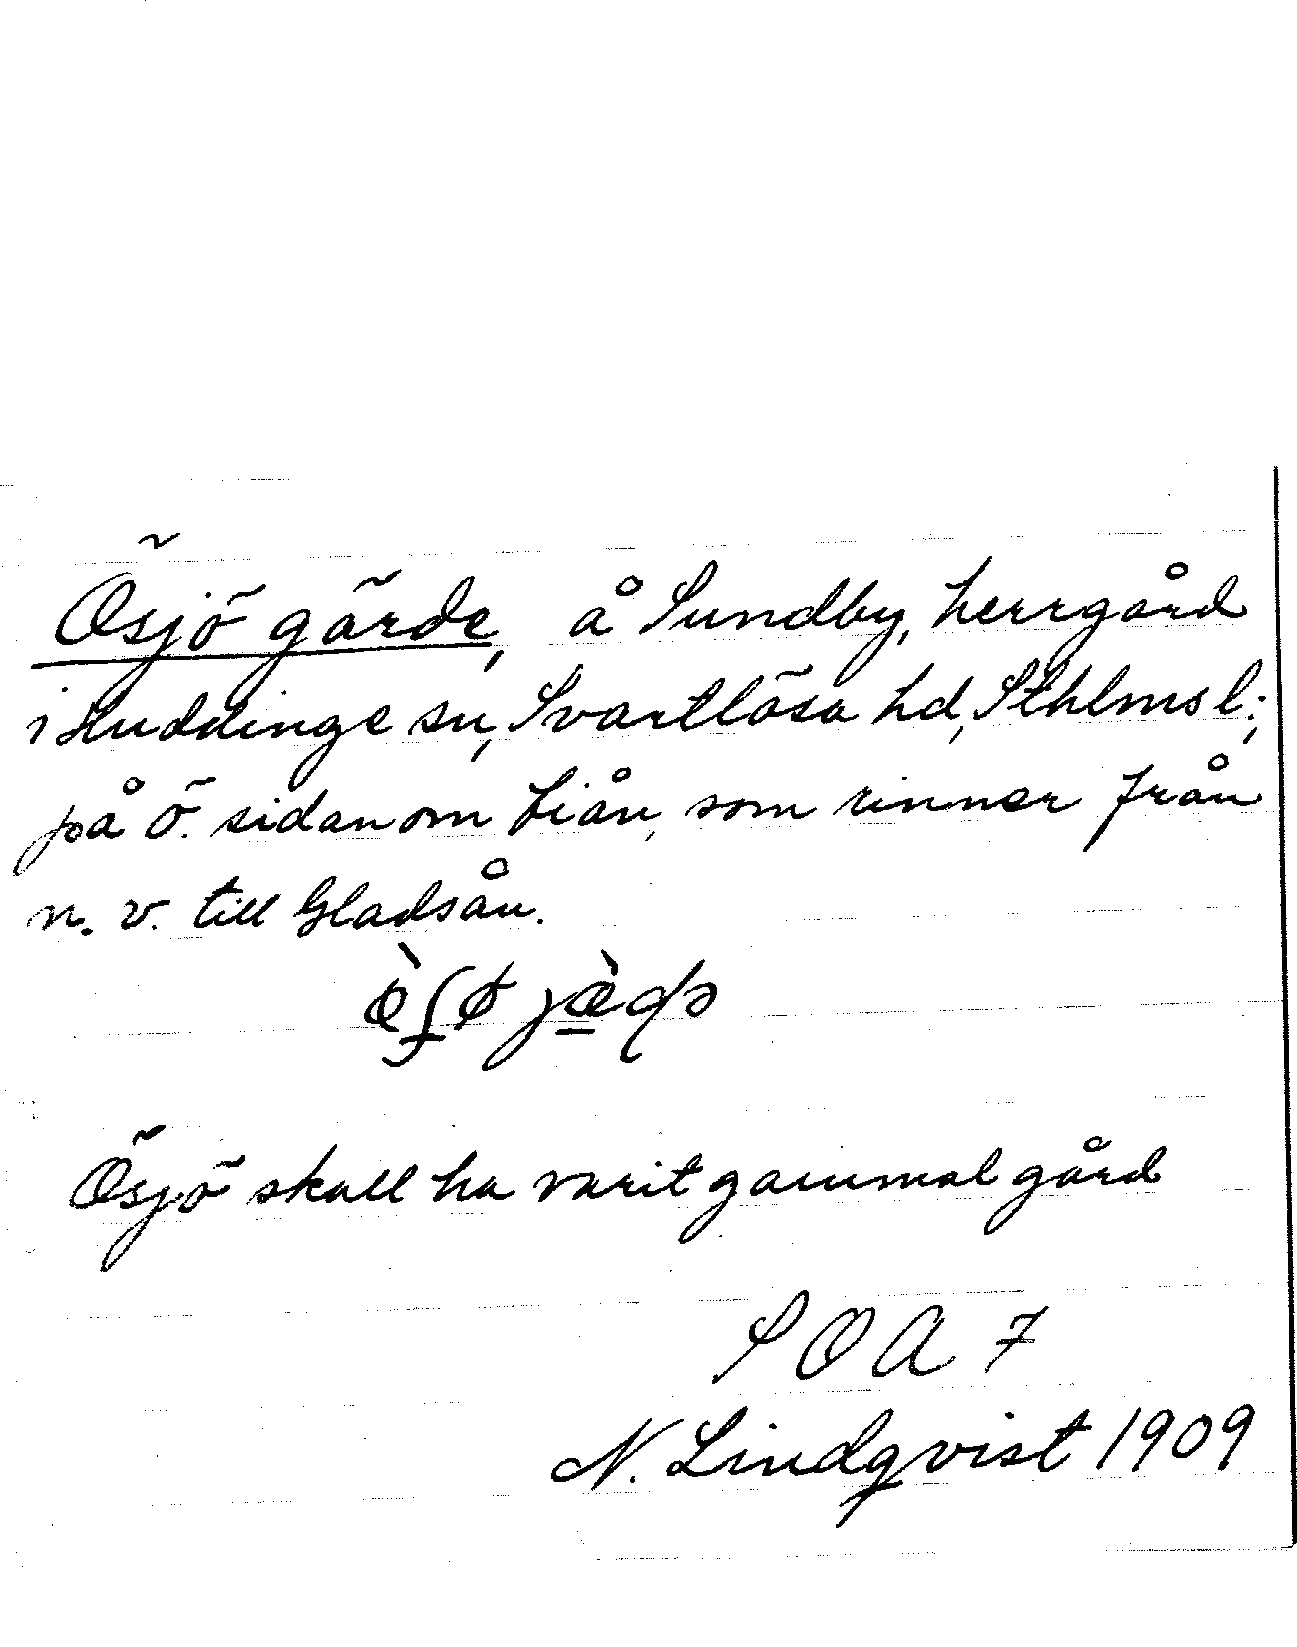 Ösjö gärde, å Sundby, herrgård
i Huddinge sn, Svartlösa hd, Sthlms l;
på ö. sidan om biån, som rinner från
n. v. till Gladsån.
Ösjö skall ha varit gammal gård
S O A 7
N. Lindqvist 1909